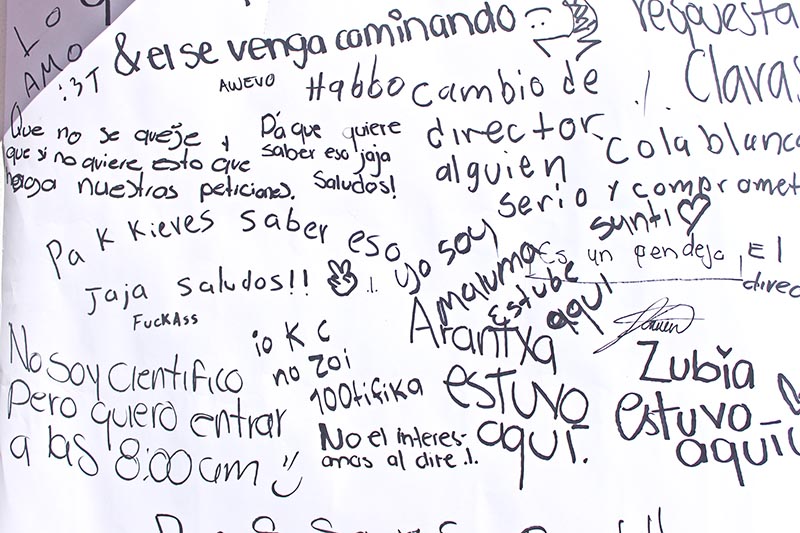 LO
AMO
:3T
& el se venga caminando
AWEVO
Habbo
cambio de
director
alguien
serio y compromet
respuesta
Claras
Cola blanca
Que no se queje y
que si no quiere esto que
haga nuestras peticiones.
Pá que quiere
saber eso jaja
Saludos!
Pa K Kieves saber eso
Jaja saludos!! .|.
FuckAss
yo soy
maluma
Estube
aqui
sunti
Es un pendejo, El
direc
Arantxa
estuvo
aquí.
Zubia
estuvo
aquí
No soy Científico
Pero quiero entrar
a las 8:00 am
io K C
no zoi
100tifika
No el interes-
amas al dire .|.